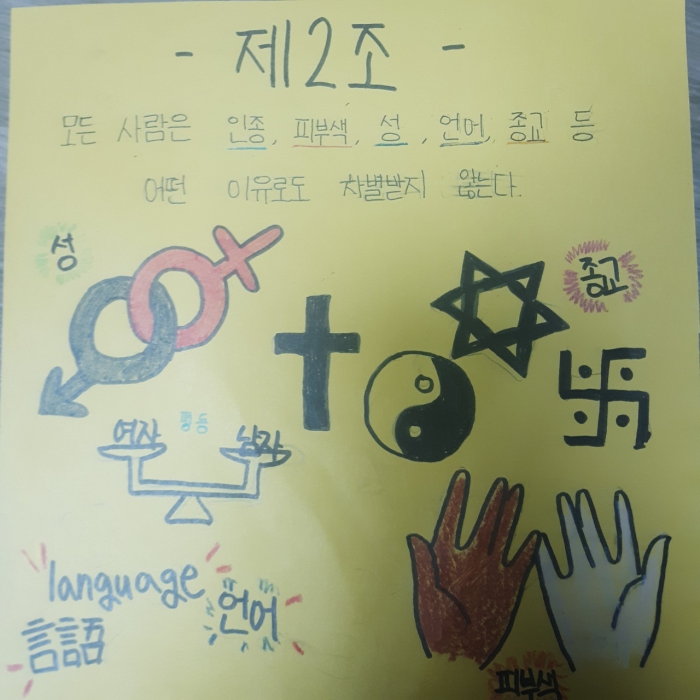 - 제2조 -
모든 사람은 인종, 피부색, 성, 언어, 종교 등
어떤 이유로도 차별받지 않는다.
성
종교
여자 평등 남자
language
언어
言語
피부색